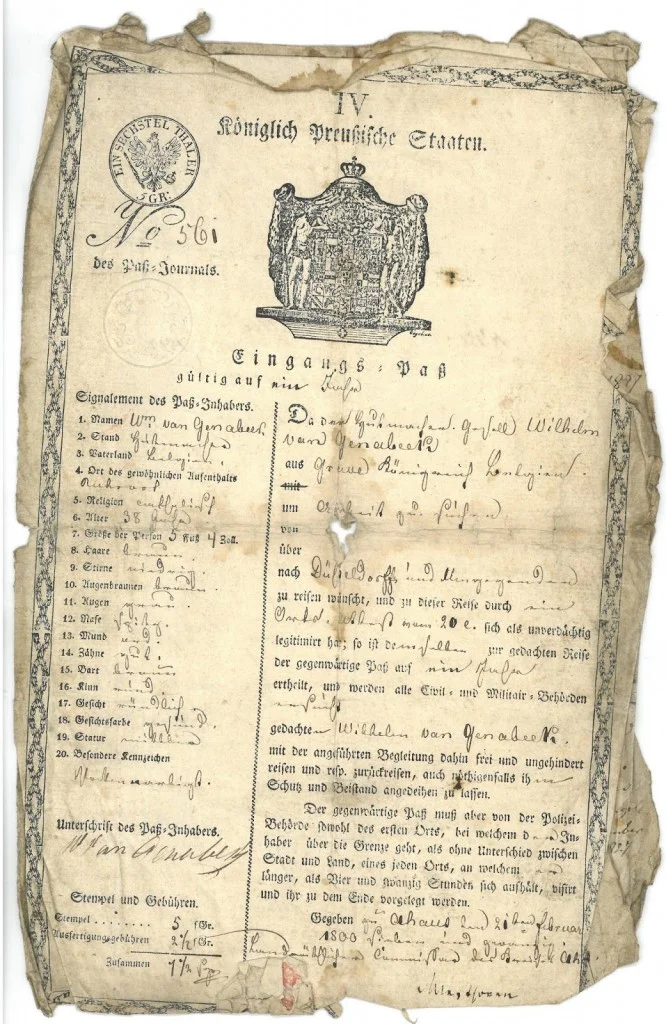 IV.
Königlich Preußische Staaten.
EIN SECHSTEL THALER
5 GR:
No 561
des Paß-Journals.
Eingangs-Paß
gültig auf ein Jahr
Signalement des Paß-Inhabers.
1. Namen Wm van Genabeek
2. Stand Hutmacher
3. Vaterland Belgien
4. Ort des gewöhnlichen Aufenthalts
5. Religion catholisch
6. Alter 38 Jahr
7. Größe der Person 5 Fuß 4 Zoll.
8. Haare braun
9. Stirne niedrig
10. Augenbraunen braun
11. Augen grau
12. Nase spitz
13. Mund
14. Zähne gut
15. Bart braun
16. Kinn rund
17. Gesicht länglich
18. Gesichtsfarbe gesund
19. Statur mittlere
20. Besondere Kennzeichen
Unterschrift des Paß-Inhabers.
W van Genabeek
Stempel und Gebühren.
Stempel ........ 5 sGr.
Ausfertigungsgebühren 2½ sGr.
Zusammen 7½ Sgr
Da der Hutmacher-Gesell Wilhelm
van Genabeek
aus Grave Königreich Belgien
mit
um Arbeit zu suchen
von
über
nach Düsseldorff und Umgegenden
zu reisen wünscht, und zu dieser Reise durch ein
Attest vom 20 c. sich als unverdächtig
legitimirt hat; so ist demselben zur gedachten Reise
der gegenwärtige Paß auf ein Jahr
ertheilt, und werden alle Civil- und Militair-Behörden
ersucht
gedachten Wilhelm van Genabeek
mit der angeführten Begleitung dahin frei und ungehindert
reisen und resp. zurückreisen, auch nöthigenfalls ihm
Schutz und Beistand angedeihen zu lassen.
Der gegenwärtige Paß muß aber von der Polizei-
Behörde sowohl des ersten Orts, bei welchem der In-
haber über die Grenze geht, als ohne Unterschied zwischen
Stadt und Land, eines jeden Orts, an welchem er
länger, als Vier und zwanzig Stunden sich aufhält, visirt
und ihr zu dem Ende vorgelegt werden.
Gegeben zu Ahaus den 21ten Februar
1800 sieben und zwanzig
Landräthlicher Commissar des Kreises